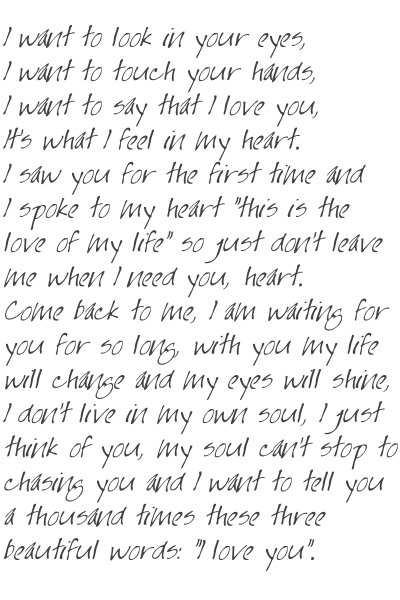 I want to look in your eyes,
I want to touch your hands,
I want to say that I love you,
It's what I feel in my heart.
I saw you for the first time and
I spoke to my heart "this is the
love of my life" so just don't leave
me when I need you, heart.
Come back to me, I am waiting for
you for so long, with you my life
will change and my eyes will shine,
I don't live in my own soul, I just
think of you, my soul can't stop to
chasing you and I want to tell you
a thousand times these three
beautiful words: "I love you".